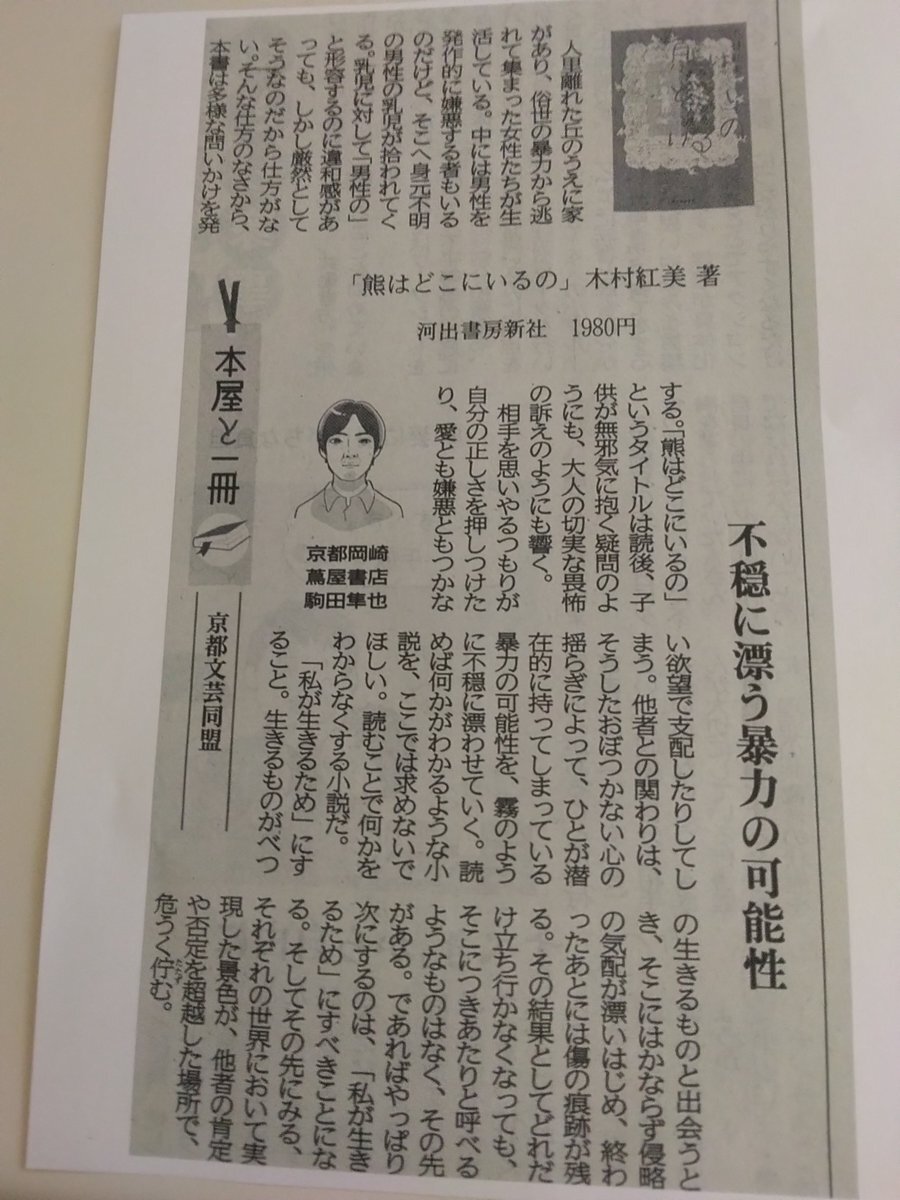 不穏に漂う暴力の可能性
「熊はどこにいるの」 木村紅美 著
河出書房新社　1980円
人里離れた丘のうえに家
があり、俗世の暴力から逃
れて集まった女性たちが生
活している。中には男性を
発作的に嫌悪する者もいる
のだけど、そこへ身元不明
の男性の乳児が拾われてく
る。乳児に対して「男性の」
と形容するのに違和感があ
っても、しかし厳然として
そうなのだから仕方がな
い。そんな仕方のなさから、
本書は多様な問いかけを発
する。「熊はどこにいるの」
というタイトルは読後、子
供が無邪気に抱く疑問のよ
うにも、大人の切実な畏怖
の訴えのようにも響く。
相手を思いやるつもりが
自分の正しさを押しつけた
り、愛とも嫌悪ともつかな
い欲望で支配したりしてし
まう。他者との関わりは、
そうしたおぼつかない心の
揺らぎによって、ひとが潜
在的に持ってしまっている
暴力の可能性を、霧のよう
に不穏に漂わせていく。読
めば何かがわかるような小
説を、ここでは求めないで
ほしい。読むことで何かを
わからなくする小説だ。
「私が生きるため」にす
ること。生きるものがべつ
の生きるものと出会うと
き、そこにはかならず侵略
の気配が漂いはじめ、終わ
ったあとには傷の痕跡が残
る。その結果としてどれだ
け立ち行かなくなっても、
そこにつきあたりと呼べる
ようなものはなく、その先
がある。であればやっぱり
次にするのは、「私が生き
るため」にすべきことにな
る。そしてその先にみる、
それぞれの世界において実
現した景色が、他者の肯定
や否定を超越した場所で、
危うく佇む。
たたず
本屋と一冊
京都岡崎
蔦屋書店
駒田隼也
京都文芸同盟